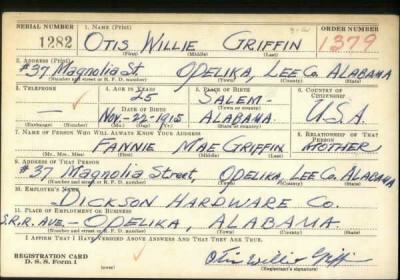 SERIAL NUMBER 1. NAME (Print) ORDER NUMBER
1282 OTIS WILLIE GRIFFIN 1379
(First) (Middle) (Last)
2. ADDRESS (Print)
#37 Magnolia St. OPELIKA, LEE Co. ALABAMA
(Number and street or R. F. D. number) (Town) (County) (State)
3. TELEPHONE 4. AGE IN YEARS 5. PLACE OF BIRTH 6. COUNTRY OF CITIZENSHIP
— 25 SALEM-
DATE OF BIRTH (Town or county)
NOV-22-1915 ALABAMA. U.S.A.
(Exchange) (Number) (Mo.) (Day) (Yr.) (State or country)
7. NAME OF PERSON WHO WILL ALWAYS KNOW YOUR ADDRESS 8. RELATIONSHIP OF THAT PERSON
FANNIE MAE GRIFFIN MOTHER
(Mr., Mrs., Miss) (First) (Middle) (Last)
9. ADDRESS OF THAT PERSON
#37 Magnolia Street, OPELIKA, LEE Co. ALABAMA
(Number and street or R. F. D. number) (Town) (County) (State)
10. EMPLOYER'S NAME
DICKSON HARDWARE Co.
11. PLACE OF EMPLOYMENT OR BUSINESS
S.R.R. AVE.- OPELIKA, ALABAMA.
(Number and street or R. F. D. number) (Town) (County) (State)
I AFFIRM THAT I HAVE VERIFIED ABOVE ANSWERS AND THAT THEY ARE TRUE.
REGISTRATION CARD
D. S. S. Form 1
Otis Willie Griffin
(Registrant's signature)